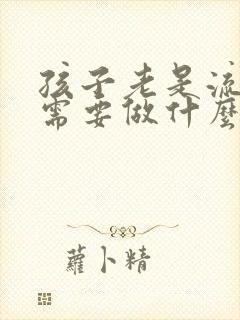 孩子老是流
需要做什麼
蘿卜精